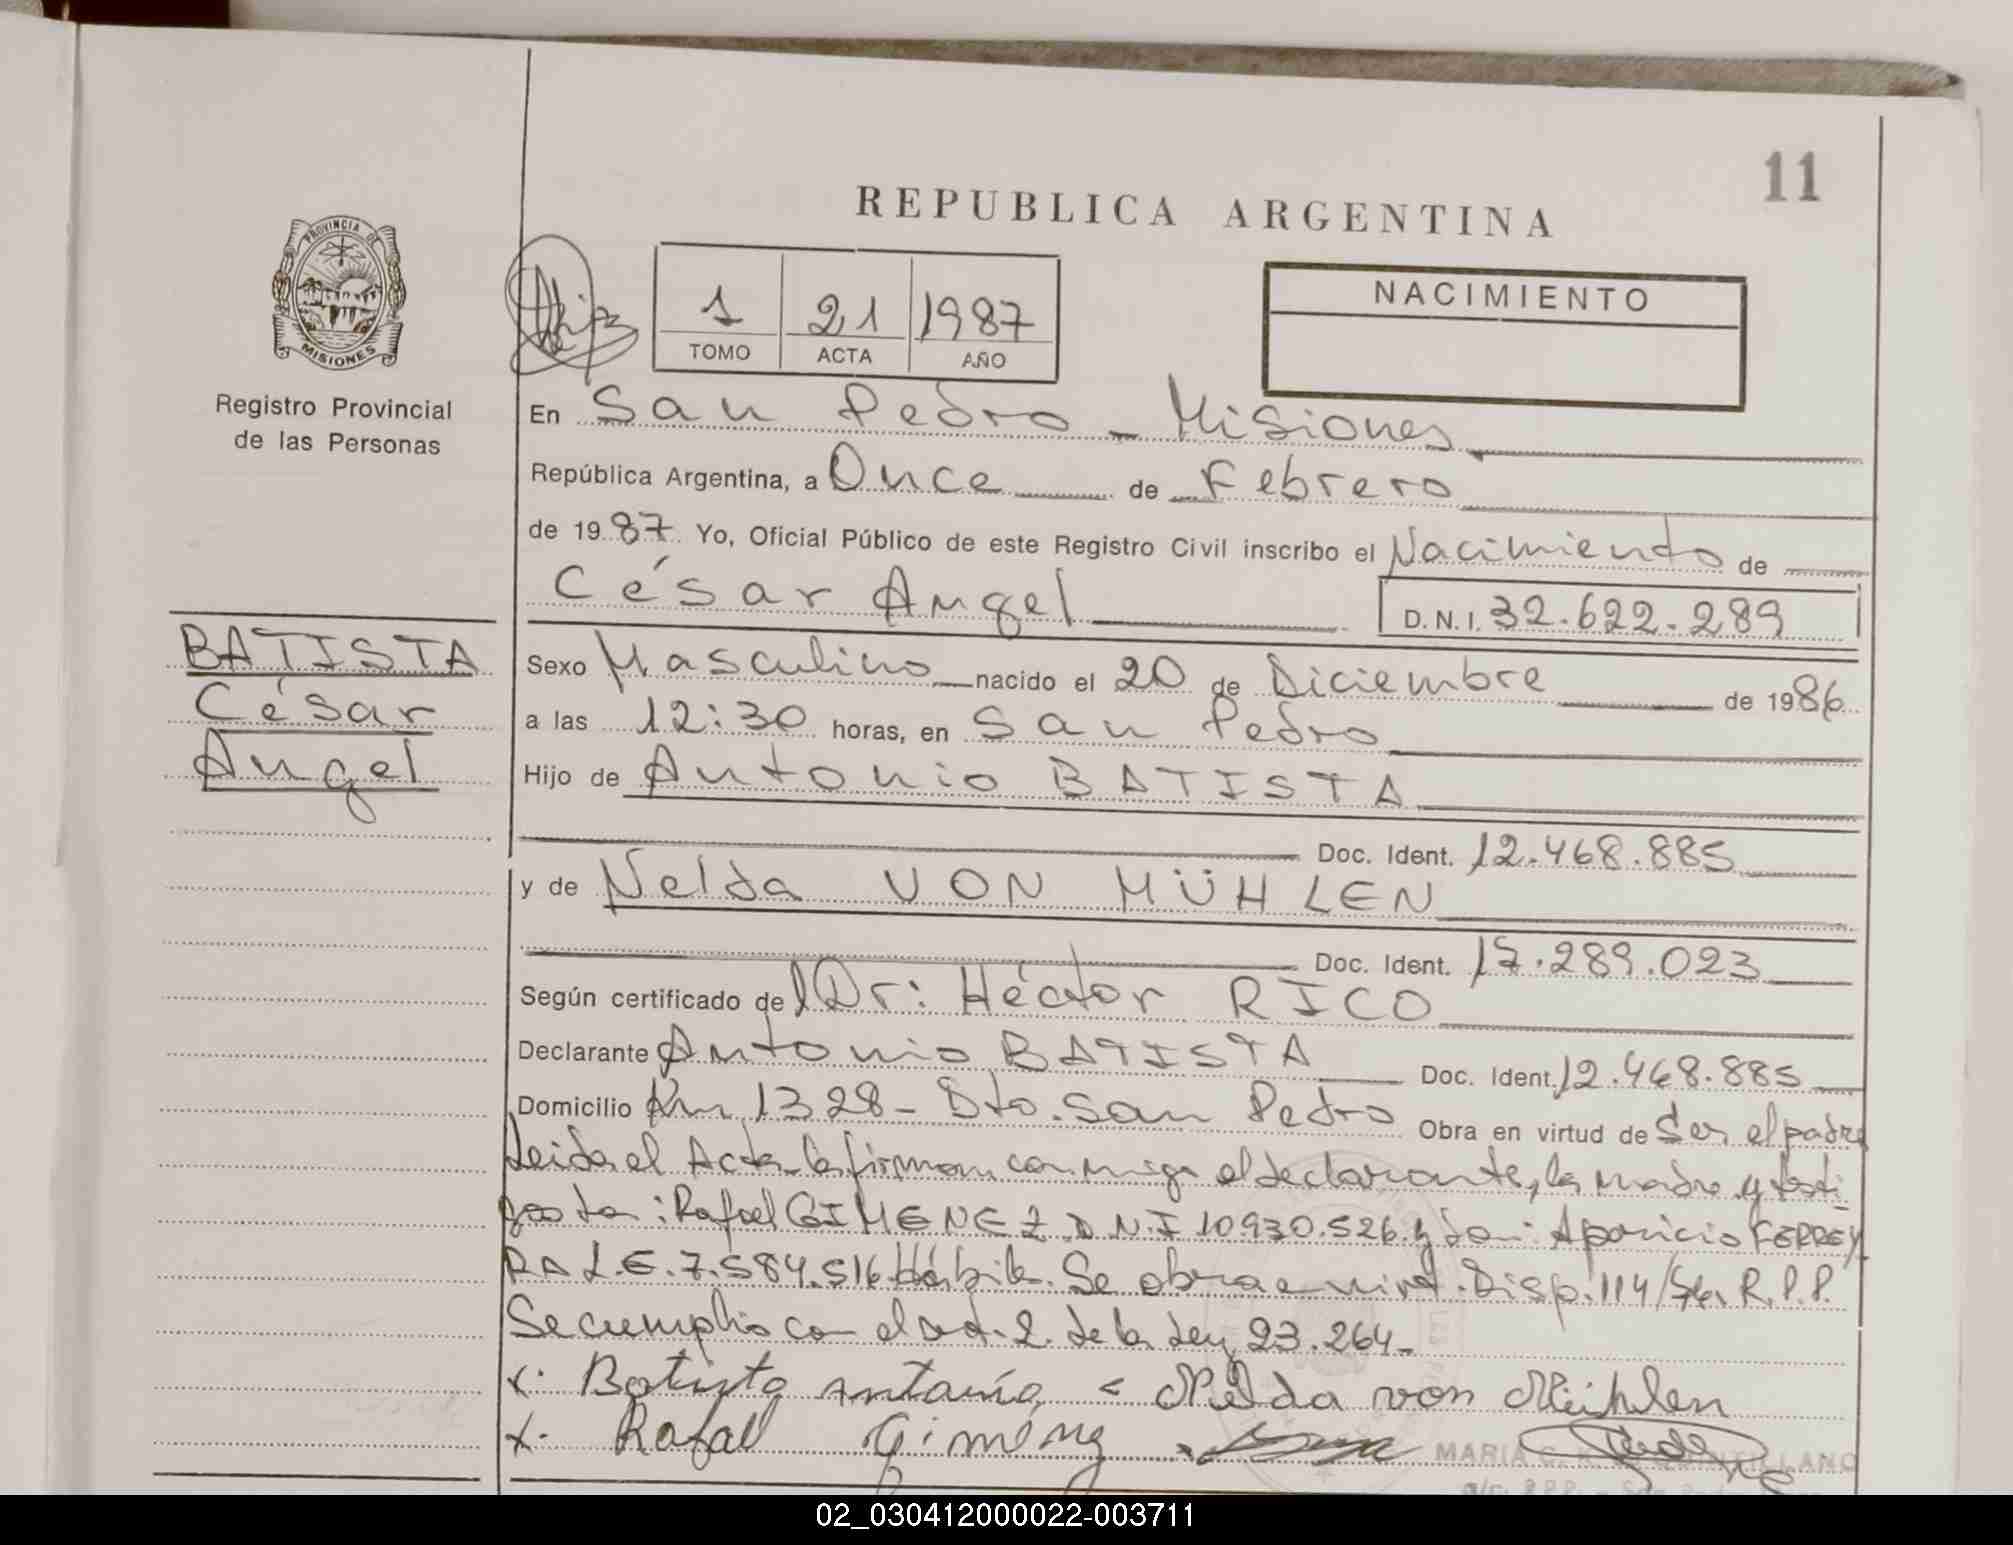 11
REPUBLICA ARGENTINA
PROVINCIA DE
MISIONES
Registro Provincial
de las Personas
1 21 1987
TOMO ACTA AÑO
NACIMIENTO
En San Pedro - Misiones
República Argentina, a Once de Febrero
de 1987 Yo, Oficial Público de este Registro Civil inscribo el Nacimiento de
César Angel D.N.I. 32.622.289
BATISTA
César
Angel
Sexo Masculino nacido el 20 de Diciembre de 1986
a las 12:30 horas, en San Pedro
Hijo de Antonio BATISTA
Doc. Ident. 12.468.885
y de Nelda VON MÜHLEN
Doc. Ident. 17.289.023
Según certificado del Dr: Héctor RICO
Declarante Antonio BATISTA Doc. Ident. 12.468.885
Domicilio Km 1328 - Dto. San Pedro Obra en virtud de Ser el padre
Leida el Acta la firman conmigo el declarante, la madre y testi
gos Don: Rafael GIMENEZ D.N.I 10.930.526 y Don: Aparicio FERREY
RA L.E. 7.584.516 Hábil. Se obra en virt. Disp. 114/ R.P.P.
Se cumplio con el art. 2 de la Ley 23.264-
x. Batista antonio Nelda von Mühlen
x. Rafael Giménez
MARIA C.
02_030412000022-003711